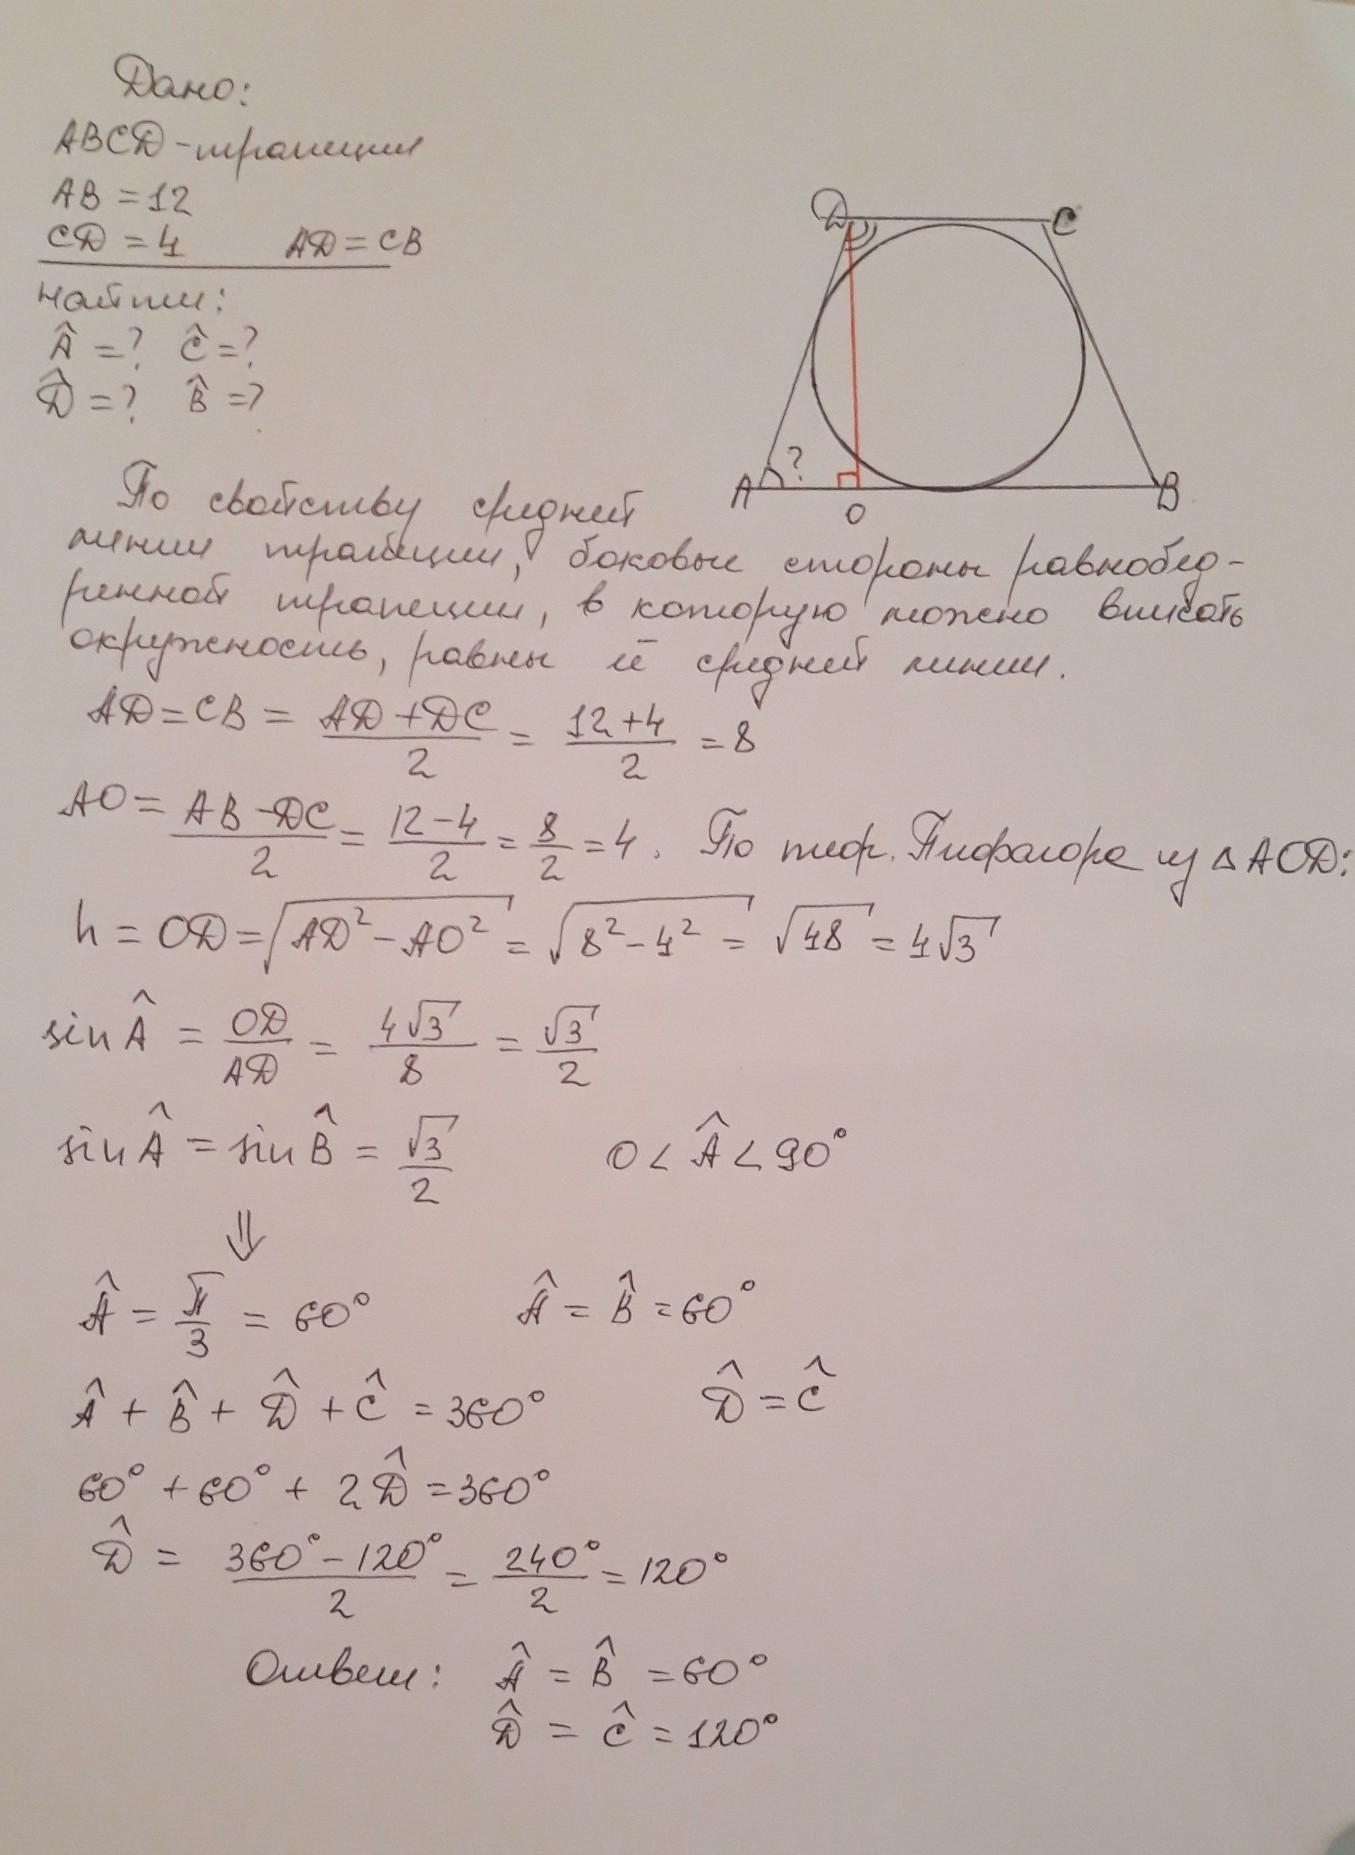 Дано:
ABCD - трапеция
AB = 12
CD = 4 AD = CB
Найти:
Â = ? Ĉ = ?
D̂ = ? B̂ = ?
D C
A ? O B
По свойству средней
линии трапеции, боковые стороны равнобед-
ренной трапеции, в которую можно вписать
окружность, равны её средней линии.
AD = CB = (AD + DC)/2 = (12 + 4)/2 = 8
AO = (AB - DC)/2 = (12 - 4)/2 = 8/2 = 4. По теор. Пифагора из △AOD:
h = OD = √(AD² - AO²) = √(8² - 4²) = √48 = 4√3
sin Â = OD/AD = 4√3/8 = √3/2
sin Â = sin B̂ = √3/2 0 < Â < 90°
⇓
Â = π/3 = 60° Â = B̂ = 60°
Â + B̂ + D̂ + Ĉ = 360° D̂ = Ĉ
60° + 60° + 2D̂ = 360°
D̂ = (360° - 120°)/2 = 240°/2 = 120°
Ответ: Â = B̂ = 60°
D̂ = Ĉ = 120°